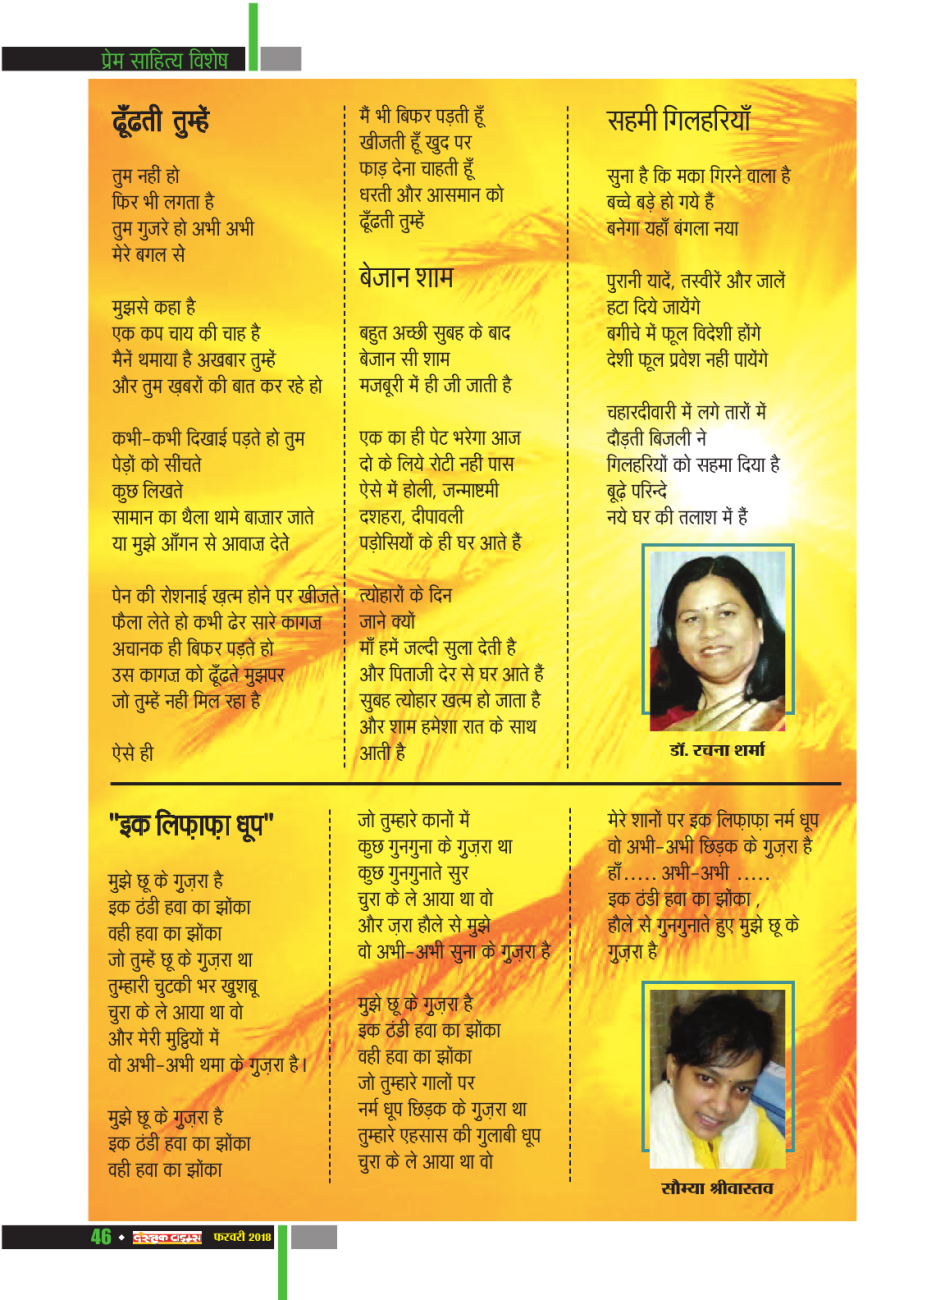 प्रेम साहित्य विशेष
ढूँढती तुम्हें
तुम नहीं हो
फिर भी लगता है
तुम गुजरे हो अभी अभी
मेरे बगल से
मुझसे कहा है
एक कप चाय की चाह है
मैनें थमाया है अखबार तुम्हें
और तुम ख़बरों की बात कर रहे हो
कभी-कभी दिखाई पड़ते हो तुम
पेड़ों को सींचते
कुछ लिखते
सामान का थैला थामे बाज़ार जाते
या मुझे आँगन से आवाज़ देते
पेन की रोशनाई ख़त्म होने पर खीजते
फैला लेते हो कभी ढेर सारे कागज़
अचानक ही बिफर पड़ते हो
उस कागज़ को ढूँढते मुझपर
जो तुम्हें नहीं मिल रहा है
ऐसे ही
मैं भी बिफर पड़ती हूँ
खीजती हूँ खुद पर
फाड़ देना चाहती हूँ
धरती और आसमान को
ढूँढती तुम्हें
बेजान शाम
बहुत अच्छी सुबह के बाद
बेजान सी शाम
मजबूरी में ही जी जाती है
एक का ही पेट भरेगा आज
दो के लिये रोटी नहीं पास
ऐसे में होली, जन्माष्टमी
दशहरा, दीपावली
पड़ोसियों के ही घर आते हैं
त्योहारों के दिन
जाने क्यों
माँ हमें जल्दी सुला देती है
और पिताजी देर से घर आते हैं
सुबह त्योहार खत्म हो जाता है
और शाम हमेशा रात के साथ
आती है
सहमी गिलहरियाँ
सुना है कि मका गिरने वाला है
बच्चे बड़े हो गये हैं
बनेगा यहाँ बंगला नया
पुरानी यादें, तस्वीरें और जालें
हटा दिये जायेंगे
बगीचे में फूल विदेशी होंगे
देशी फूल प्रवेश नहीं पायेंगे
चहारदीवारी में लगे तारों में
दौड़ती बिजली ने
गिलहरियों को सहमा दिया है
बूढ़े परिन्दे
नये घर की तलाश में हैं
डॉ. रचना शर्मा
"इक लिफ़ाफ़ा धूप"
मुझे छू के गुज़रा है
इक ठंडी हवा का झोंका
वही हवा का झोंका
जो तुम्हें छू के गुज़रा था
तुम्हारी चुटकी भर खुशबू
चुरा के ले आया था वो
और मेरी मुट्ठियों में
वो अभी-अभी थमा के गुज़रा है।
मुझे छू के गुज़रा है
इक ठंडी हवा का झोंका
वही हवा का झोंका
जो तुम्हारे कानों में
कुछ गुनगुना के गुज़रा था
कुछ गुनगुनाते सुर
चुरा के ले आया था वो
और ज़रा हौले से मुझे
वो अभी-अभी सुना के गुज़रा है
मुझे छू के गुज़रा है
इक ठंडी हवा का झोंका
वही हवा का झोंका
जो तुम्हारे गालों पर
नर्म धूप छिड़क के गुज़रा था
तुम्हारे एहसास की गुलाबी धूप
चुरा के ले आया था वो
मेरे शानों पर इक लिफ़ाफ़ा नर्म धूप
वो अभी-अभी छिड़क के गुज़रा है
हाँ..... अभी-अभी .....
इक ठंडी हवा का झोंका ,
हौले से गुनगुनाते हुए मुझे छू के
गुज़रा है
सौम्या श्रीवास्तव
46 • फरवरी 2018